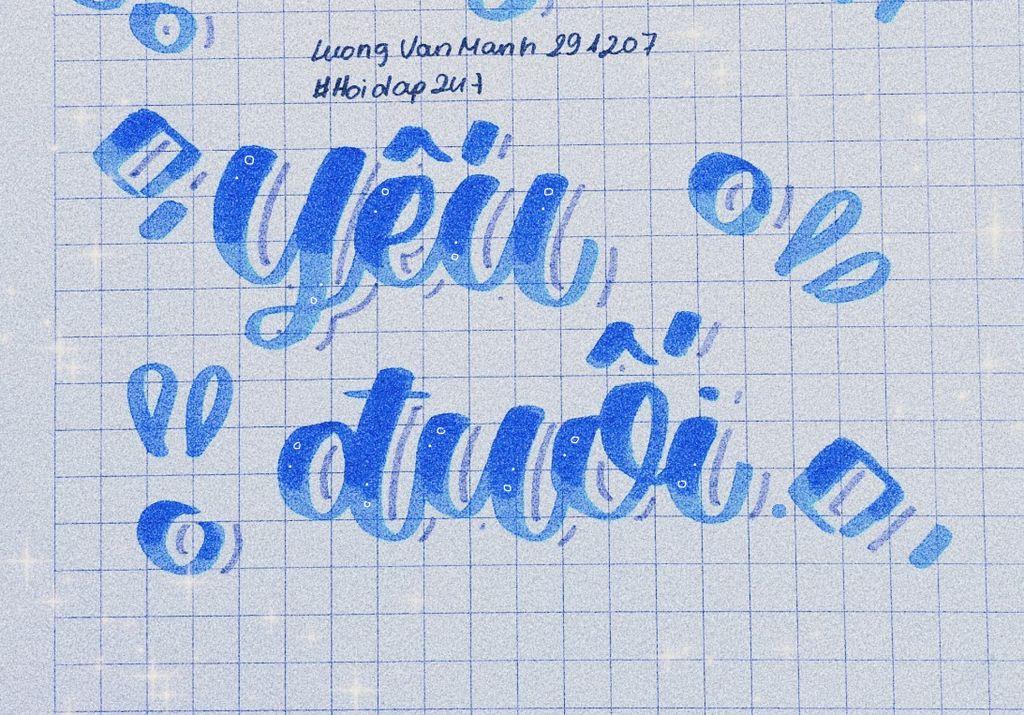 Luong Van Manh 291207
#Hoidap247
yếu
đuối.